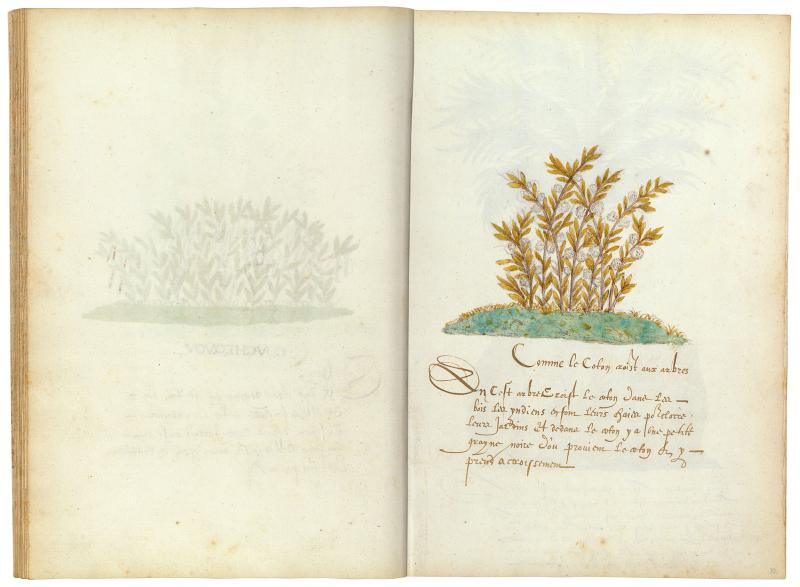 Comme le Coton croist aux arbres
En Cest arbre Croist le coton dans les
bois les yndiens en font leurs haies po clorre
leurs Jardins Et dedans le coton y a Une petite
grayne noire dou provient le coton Et y
prend accroissement